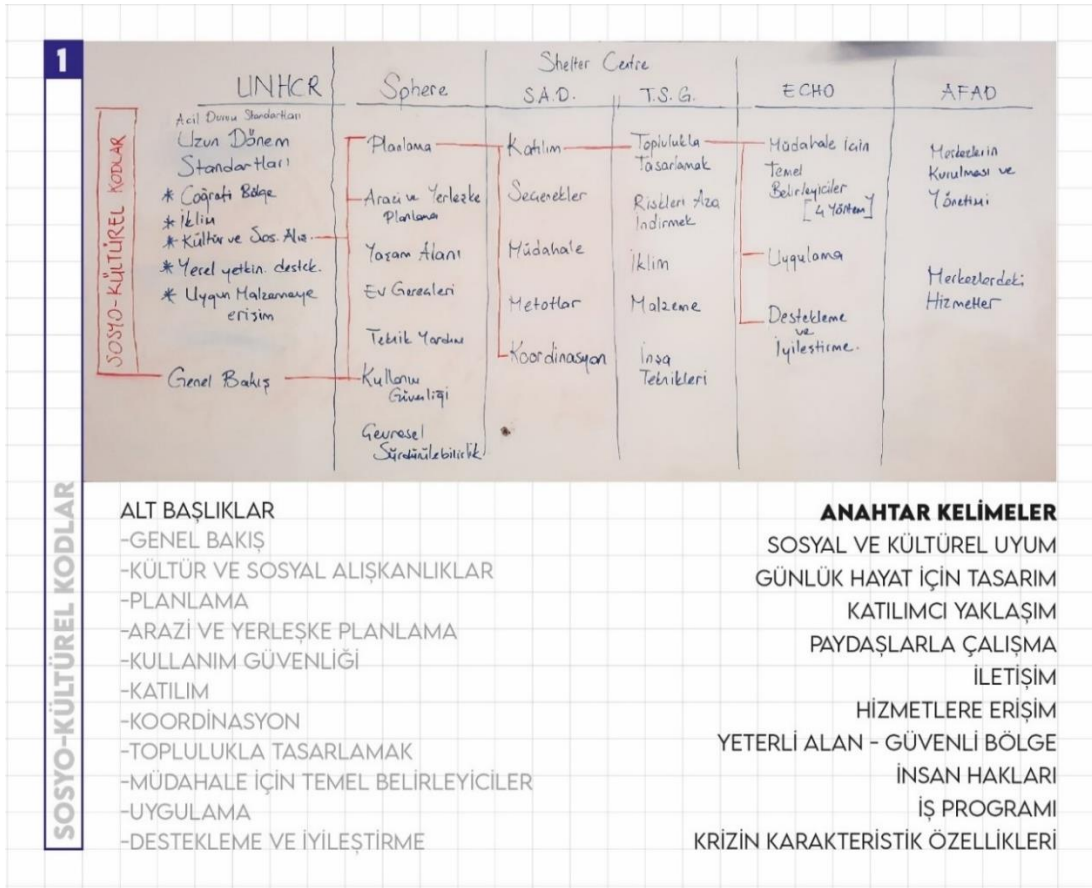 1
Shelter Centre
UNHCR
Sphere
S.A.D.
T.S.G.
ECHO
AFAD
SOSYO-KÜLTÜREL KODLAR
Acil Durum Standartları
Uzun Dönem
Standartları
* Coğrafi Bölge
* İklim
* Kültür ve Sos. Alış.
* Yerel yetkin. destek.
* Uygun Malzemeye
erişim
Genel Bakış
Planlama
Arazi ve Yerleşke
Planlama
Yaşam Alanı
Ev Gereçleri
Teknik Yardım
Kullanım
Güvenliği
Çevresel
Sürdürülebilirlik
Katılım
Seçenekler
Müdahale
Metotlar
Koordinasyon
Toplulukla
Tasarlamak
Riskleri Aza
İndirmek
İklim
Malzeme
İnşa
Teknikleri
Müdahale İçin
Temel
Belirleyiciler
[4 Yöntem]
Uygulama
Destekleme
ve
İyileştirme.
Merkezlerin
Kurulması ve
Yönetimi
Merkezlerdeki
Hizmetler
SOSYO-KÜLTÜREL KODLAR
ALT BAŞLIKLAR
-GENEL BAKIŞ
-KÜLTÜR VE SOSYAL ALIŞKANLIKLAR
-PLANLAMA
-ARAZİ VE YERLEŞKE PLANLAMA
-KULLANIM GÜVENLİĞİ
-KATILIM
-KOORDİNASYON
-TOPLULUKLA TASARLAMAK
-MÜDAHALE İÇİN TEMEL BELİRLEYİCİLER
-UYGULAMA
-DESTEKLEME VE İYİLEŞTİRME
ANAHTAR KELİMELER
SOSYAL VE KÜLTÜREL UYUM
GÜNLÜK HAYAT İÇİN TASARIM
KATILIMCI YAKLAŞIM
PAYDAŞLARLA ÇALIŞMA
İLETİŞİM
HİZMETLERE ERİŞİM
YETERLİ ALAN - GÜVENLİ BÖLGE
İNSAN HAKLARI
İŞ PROGRAMI
KRİZİN KARAKTERİSTİK ÖZELLİKLERİ